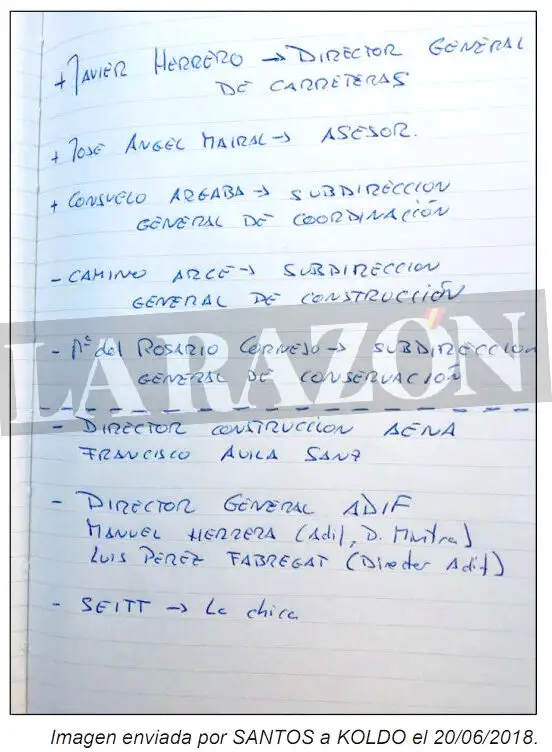 + JAVIER HERRERO → DIRECTOR GENERAL
DE CARRETERAS
+ JOSE ANGEL MAIRAL → ASESOR.
+ CONSUELO ARGABA → SUBDIRECCION
GENERAL DE COORDINACIÓN
- CAMINO ARCE → SUBDIRECCION
GENERAL DE CONSTRUCCIÓN
LA RAZÓN
- Mª del ROSARIO CORNEJO → SUBDIRECCION
GENERAL DE CONSERVACIÓN
- DIRECTOR CONSTRUCCION AENA
FRANCISCO AVILA SANZ
- DIRECTOR GENERAL ADIF
MANUEL HERRERA (Adif, D.
LUIS PEREZ FABREGAT (Director Adif)
- SEITT → La chica
Imagen enviada por SANTOS a KOLDO el 20/06/2018.